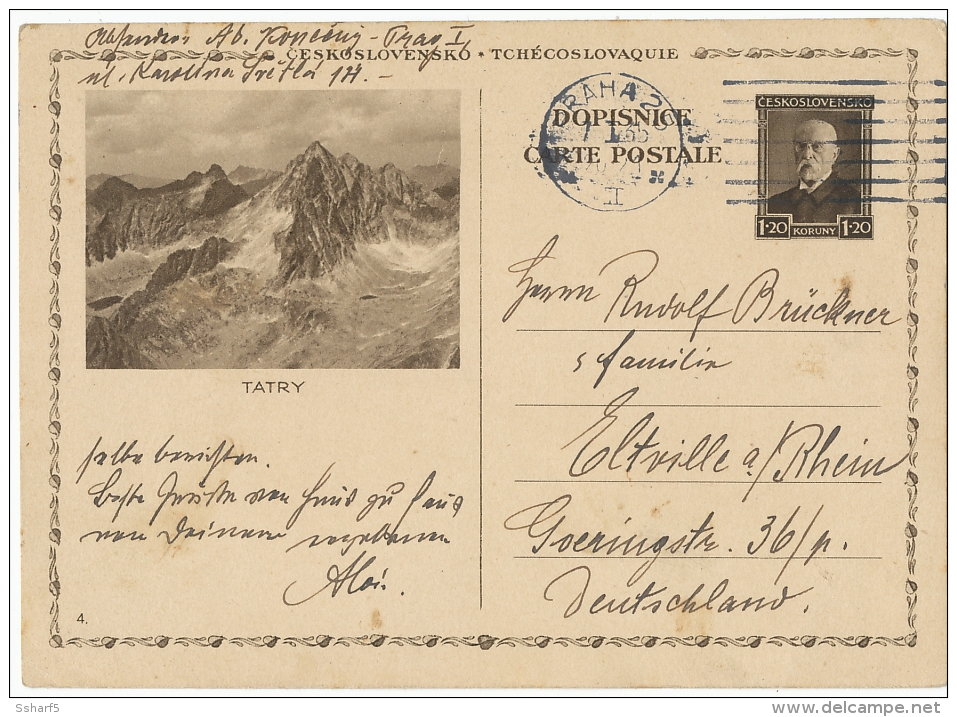 Al. Konečný - Prag I,
ul. Karolina Světlá 14. -
ČESKOSLOVENSKO * TCHÉCOSLOVAQUIE
DOPISNICE
CARTE POSTALE
PRAHA 25
II
ČESKOSLOVENSKO
1·20 KORUNY 1·20
TATRY
Herrn Rudolf Brückner
s familie
Eltville a/Rhein
Goeringstr. 36/p.
Deutschland.
selbe berichten.
Beste Grüsse von Haus zu Haus
von Deinem ergebenen
Alois.
4.
Ssharf5
http://www.delcampe.net